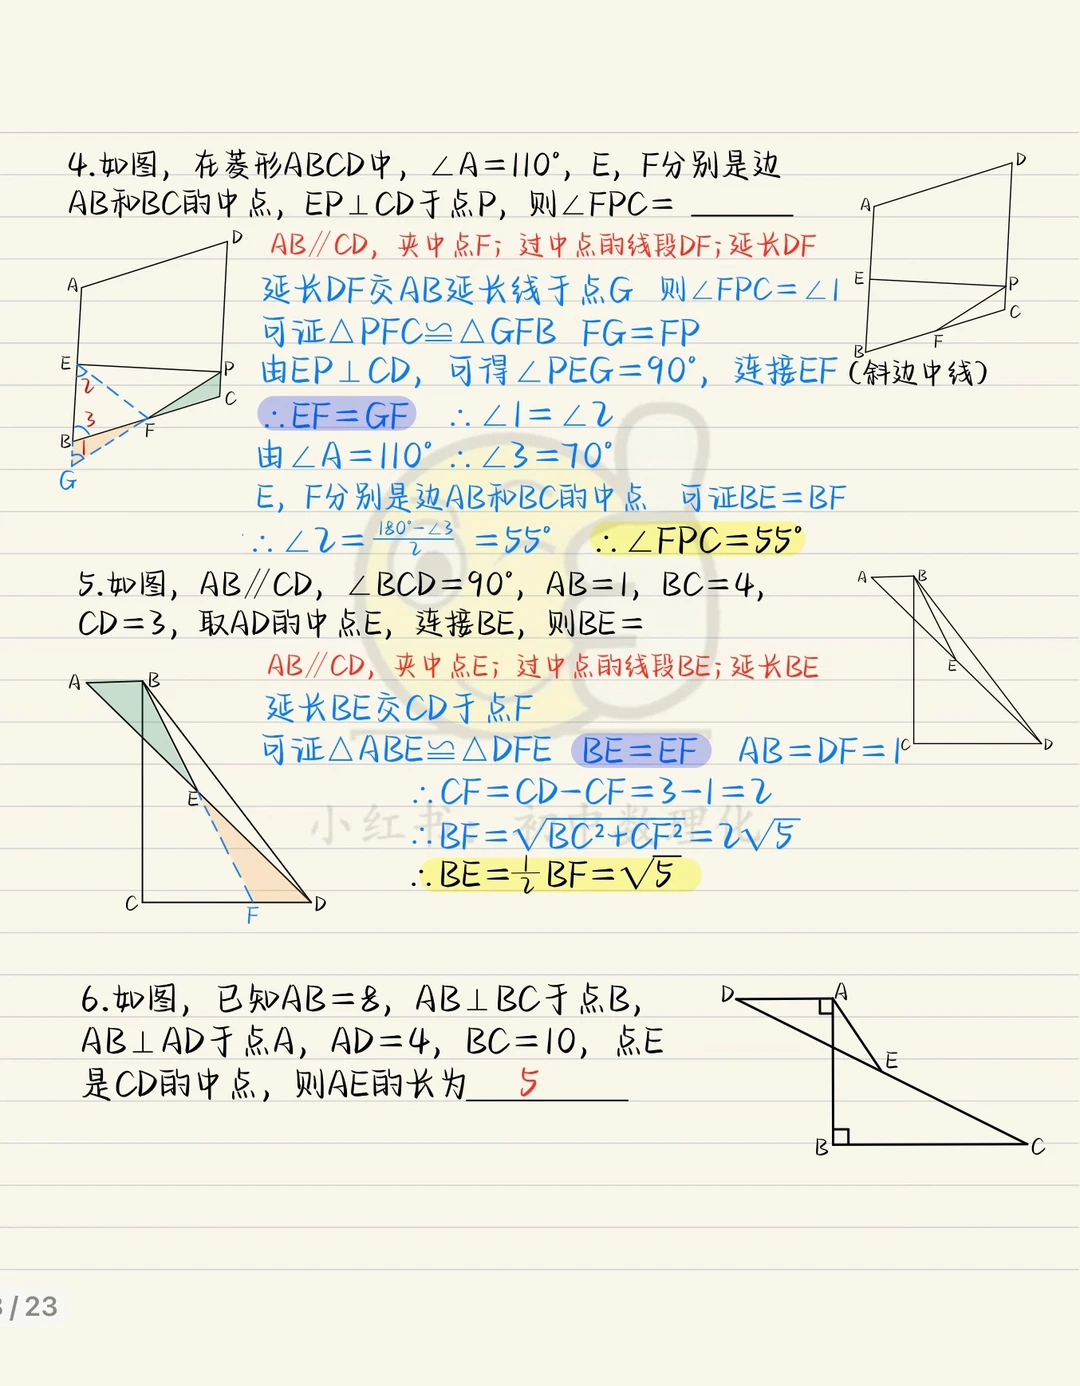 4.如图，在菱形ABCD中，∠A=110°，E，F分别是边
AB和BC的中点，EP⊥CD于点P，则∠FPC=
AB∥CD，夹中点F；过中点的线段DF；延长DF
延长DF交AB延长线于点G 则∠FPC=∠1
可证△PFC≌△GFB FG=FP
由EP⊥CD，可得∠PEG=90°，连接EF（斜边中线）
∴EF=GF ∴∠1=∠2
由∠A=110° ∴∠3=70°
E，F分别是边AB和BC的中点 可证BE=BF
∴∠2=(180°-∠3)/2=55° ∴∠FPC=55°
A
D
E
P
C
B
F
G
2
3
1
A
D
E
P
C
B
F
5.如图，AB∥CD，∠BCD=90°，AB=1，BC=4，
CD=3，取AD的中点E，连接BE，则BE=
AB∥CD，夹中点E；过中点的线段BE；延长BE
延长BE交CD于点F
可证△ABE≌△DFE BE=EF AB=DF=1
∴CF=CD-CF=3-1=2
∴BF=√BC²+CF²=2√5
∴BE=1/2BF=√5
A
B
E
C
F
D
A
B
E
C
D
小红书：初中数理化
6.如图，已知AB=8，AB⊥BC于点B，
AB⊥AD于点A，AD=4，BC=10，点E
是CD的中点，则AE的长为 5
D
A
E
B
C
/23